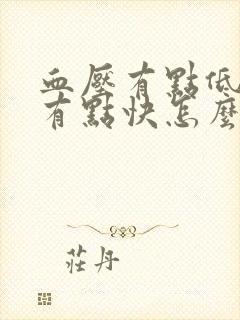 血壓有點低
有點快怎麼
莊丹